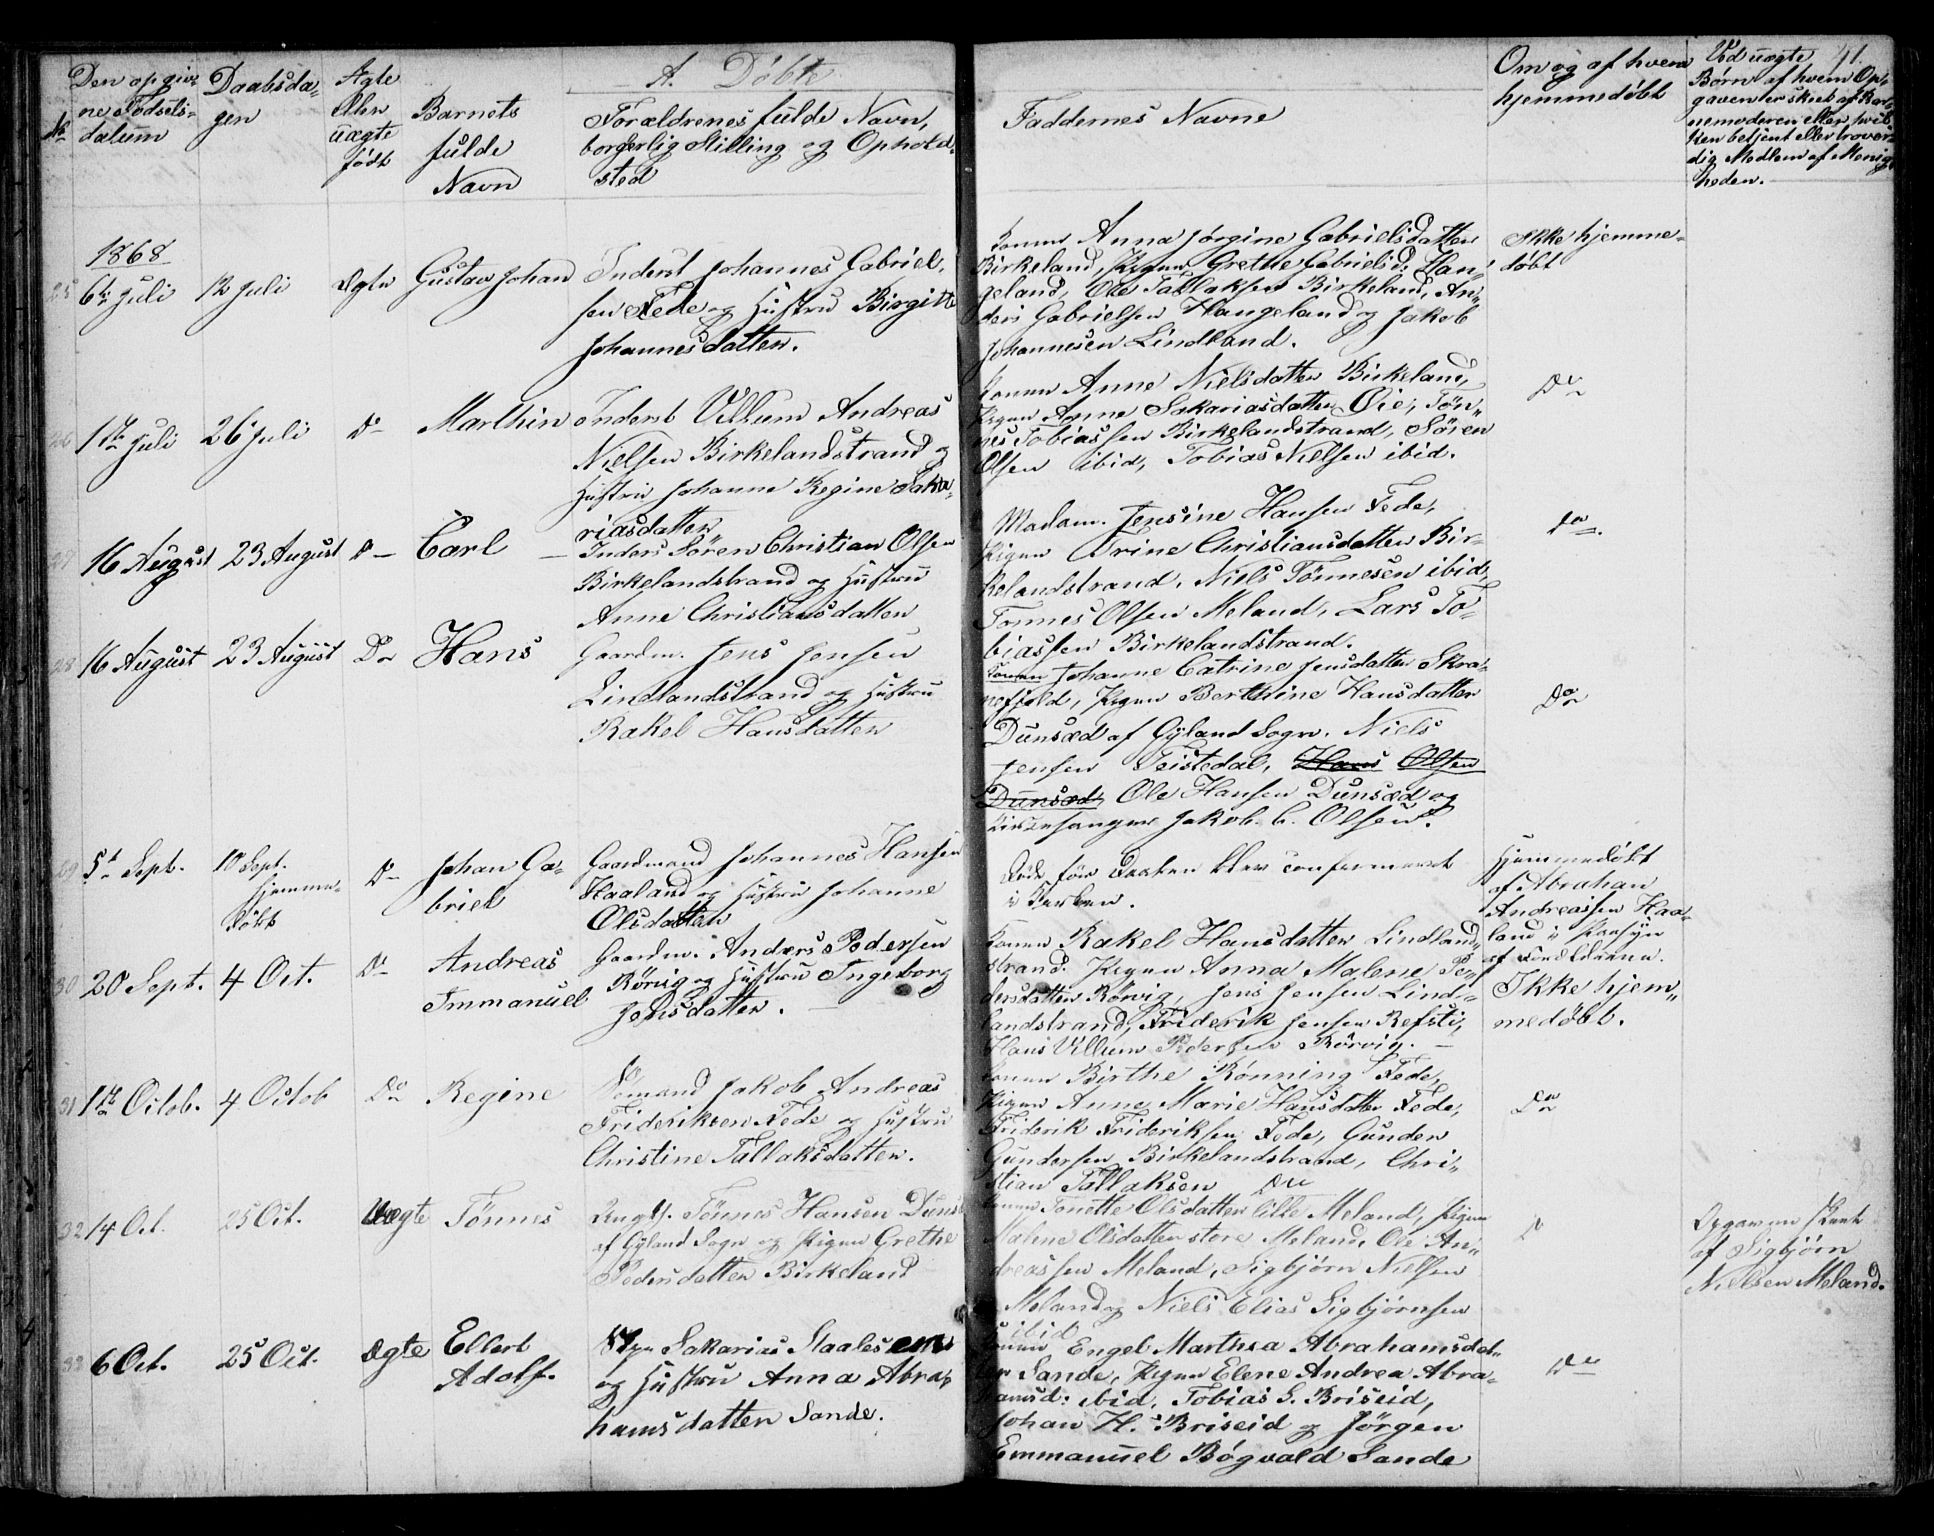 41.
A. Døbte
No
Den opgiv-
ne Fødsels-
datum
Daabsda-
gen
Ægte
eller
uægte
født
Barnets
fulde
Navn
Forældrenes fulde Navn,
borgerlig Stilling og Ophold-
sted
Faddernes Navne
Om og af hvem
hjemmedøbt
Ved uægte
Børn af hvem Op-
gaven er skeet af Bar-
nemoderen eller hvil
ken betjent eller trover-
dig Medlem af Menig
heden.
1868
25 6te juli
12 juli
Ægte
Gustav Johan
Inderst Johannes Gabriel-
sen Fede og Hustru Birgitte
Johannesdatter.
Konen Anna Jørgine Gabrielsdatter
Birkeland, Pigen Grethe Gabrielsd: Han-
geland, Ole Tallaksen Birkeland, An-
ders Gabrielsen Hangeland og Jakob
Johannesen Lindland.
Ikke hjemme-
døbt
26 1ste juli
26 juli
Do
Marthin
Inderst Villum Andreas
Nielsen Birkelandstrand og
Hustru Johanne Regine Saka-
riasdatter
Konen Anne Nielsdatter Birkeland,
Pigen Anne Sakariasdatter Øie, Tøn-
nes Tobiassen Birkelandstrand, Søren
Olsen ibid, Tobias Nielsen ibid.
Do
27 16 August
23 August
Do
Carl
Inders Søren Christian Olsen
Birkelandstrand og Hustru
Anne Christiansdatter
Madam. Jensine Hansen Fede,
Pigen Trine Christiansdatter Bir-
kelandstrand, Niels Tønnesen ibid,
Tønnes Olsen Meland, Lars To-
biassen Birkelandstrand.
Do.
28 16 August
23 August
Do
Hans
Gaardm. Jens Jensen
Lindlandstrand og Hustru
Rakel Hansdatter
Konen Johanne Catrine Jensdatter Skra-
nefjeld, Pigen Berthine Hansdatter
Dunsæd af Gyland Sogn. Niels
Jensen Teistedal, Hans Olsen
Dunsæd, Ole Hansen Dunsæd og
Kirkesanger Jakob. C. Olsen.
Do
29 5te Sept.
10 Sept.
hjemme-
døbt
Do
Johan Ga-
briel
Gaardmand Johannes Hansen
Haaland og Hustru Johanne
Olsdatter
Døde før Daaben blev confirmeret
i Kirken.
Hjemmedøbt
af Abraham
Andreassen Haa-
land i Paasyn
af Forældrene.
30 20 Sept.
4 Oct.
Do
Andreas
Immanuel
Gaardm. Anders Pedersen
Rørvig og Hustru Ingeborg
Jensdatter.
Konen Rakel Hansdatter Lindland-
strand. Pigen Anna Malene Pe-
dersdatter Rørvig, Jens Jensen Lind-
landstrand, Friderik Jensen Refsti,
Hans Villum Pedersen Rørvig.
Ikke hjem-
medøbt.
31 1ste Octob.
4 Octob
Do
Regine
Sømand Jakob Andreas
Frideriksen Fede og Hustru
Christine Tallaksdatter.
Konen Birthe Rønning Fede,
Pigen Anne Marie Hansdatter Fede,
Friderik Frideriksen Fede, Gunder
Gundersen Birkelandstrand, Chri-
stian Tallaksen Do
Do
32 14 Oct.
25 Oct.
Uægte
Tønnes
Ungk. Tønnes Hansen Duns
af Gyland Sogn og Pigen Grethe
Pedersdatter Birkeland
Konen Tonette Olsdatter lille Meland, Pigen
Malene Olsdatter store Meland, Ole An-
dreassen Meland, Sigbjørn Nielsen
Meland og Niels Elias Sigbjørnsen
ibid
D
Opgaven skeet
af Sigbjørn
Nielsen Meland.
33 6 Oct.
25 Oct.
Ægte
Ellert
Adolf.
Sakarias Staalesen
og Hustru Anna Abra-
hamsdatter Sande.
Konen Engel Marthea Abrahamsdat-
ter Sande, Pigen Elene Andrea Abra-
hamsd: ibid, Tobias G. Briseid,
Johan H. Briseid og Jørgen
Emmanuel Bøgvald Sande
Do